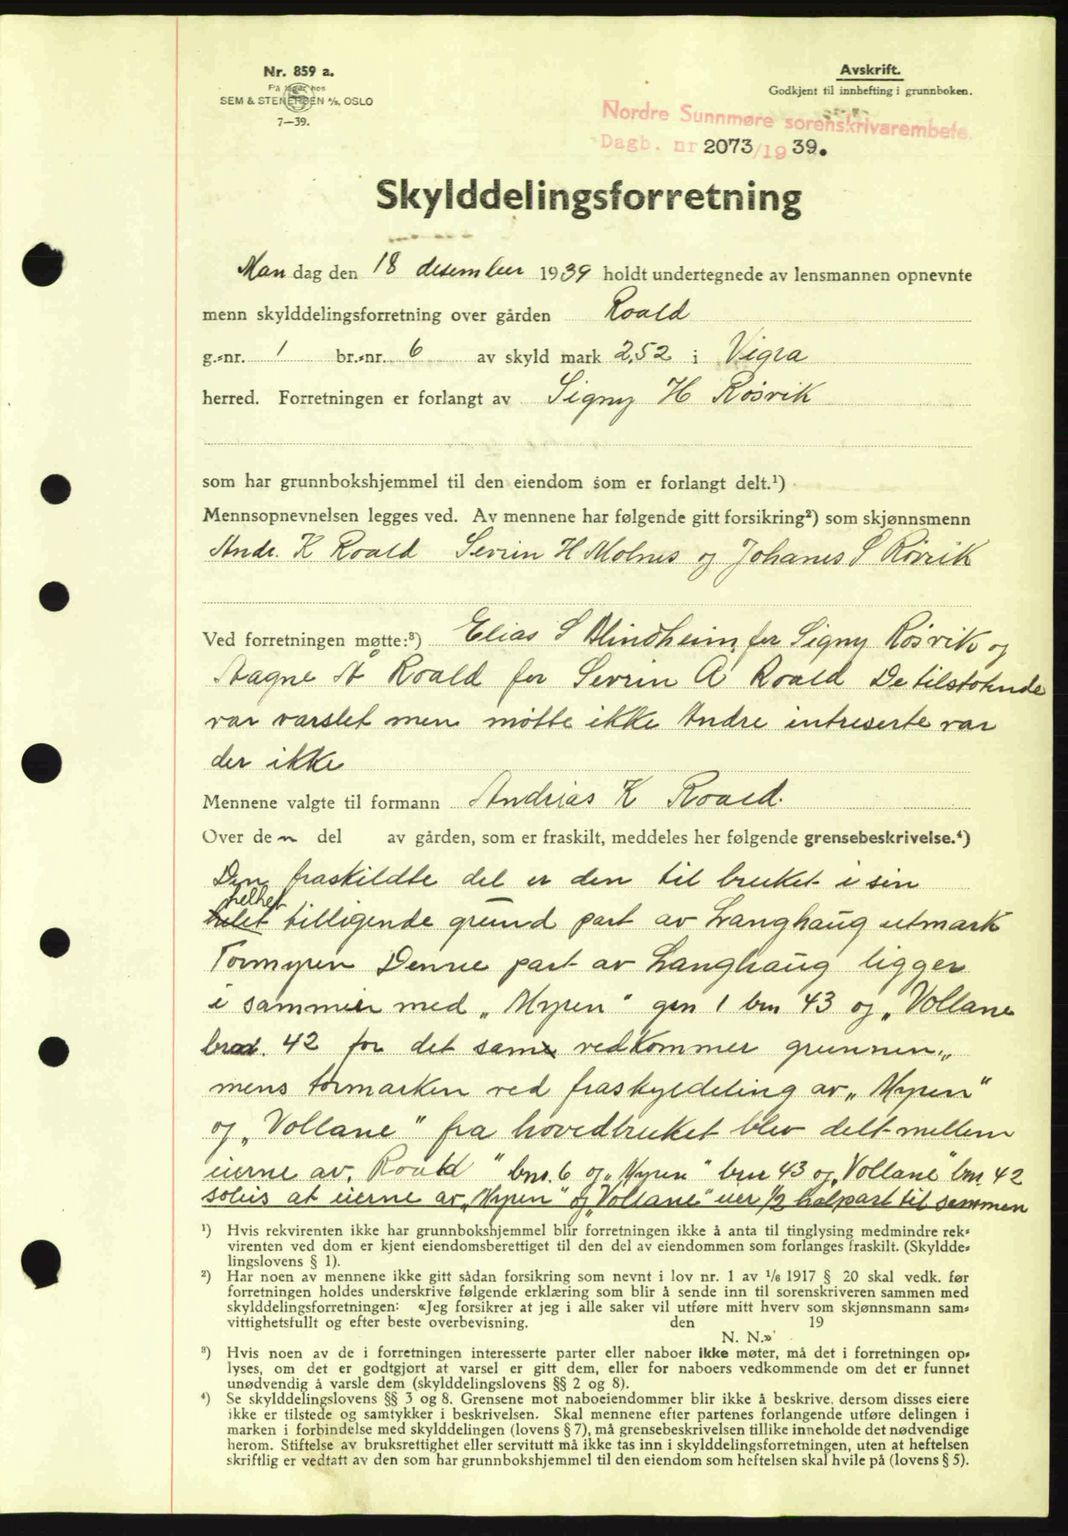 Nr. 859 a.
På lager hos
SEM & STENERSEN A/S, OSLO
7—39.
Avskrift.
Godkjent til innhefting i grunnboken.
Nordre Sunnmøre sorenskrivarembete.
Dagb. nr 2073/1939.
Skylddelingsforretning
Man dag den 18 desember 1939 holdt undertegnede av lensmannen opnevnte
menn skylddelingsforretning over gården Roald
g.-nr. 1 br.-nr. 6 av skyld mark 2,52 i Vigra
herred. Forretningen er forlangt av Signy H Røsvik
som har grunnbokshjemmel til den eiendom som er forlangt delt.¹)
Mennsopnevnelsen legges ved. Av mennene har følgende gitt forsikring²) som skjønnsmenn
Andr. K Roald Severin H Molnes og Johanes S Røsvik
Ved forretningen møtte:³) Elias S Blindheim for Signy Røsvik og
Magne A Roald for Severin A Roald De tilstøtende
var varslet men møtte ikke Andre intreserte var
der ikke
Mennene valgte til formann Andrias K Roald.
Over den del av gården, som er fraskilt, meddeles her følgende grensebeskrivelse.⁴)
Den fraskildte del er den til bruket i sin
helhet tilligende grund part av Langhaug utmark
Tormyren Denne part av Langhaug ligger
i sammen med „Myren" gnr 1 bnr 43 og „Vollane
bruk. 42 for det same vedkommer grunnen„
mens tormarken ved fraskyldeling av „Myren"
og „Vollane" fra hovedbruket blev delt mellem
eierne av, Roald" bnr. 6 og „Myren" bnr 43 og „Vollane" bnr 42
soleis at eierne av „Myren" og „Vollane" eier 1/2 halpart til sammen
¹) Hvis rekvirenten ikke har grunnbokshjemmel blir forretningen ikke å anta til tinglysing medmindre rek-
virenten ved dom er kjent eiendomsberettiget til den del av eiendommen som forlanges fraskilt. (Skyldde-
lingslovens § 1).
²) Har noen av mennene ikke gitt sådan forsikring som nevnt i lov nr. 1 av 1/6 1917 § 20 skal vedk. før
forretningen holdes underskrive følgende erklæring som blir å sende inn til sorenskriveren sammen med
skylddelingsforretningen: «Jeg forsikrer at jeg i alle saker vil utføre mitt hverv som skjønnsmann sam-
vittighetsfullt og efter beste overbevisning. den 19
N. N.»
³) Hvis noen av de i forretningen interesserte parter eller naboer ikke møter, må det i forretningen op-
lyses, om det er godtgjort at varsel er gitt dem, eller for naboers vedkommende om det er funnet
unødvendig å varsle dem (skylddelingslovens §§ 2 og 8).
⁴) Se skylddelingslovens §§ 3 og 8. Grensene mot naboeiendommer blir ikke å beskrive, dersom disses eiere
ikke er tilstede og samtykker i beskrivelsen. Skal mennene efter partenes forlangende utføre delingen i
marken i forbindelse med skylddelingen (lovens § 7), må grensebeskrivelsen tillike inneholde det nødvendige
herom. Stiftelse av bruksrettighet eller servitutt må ikke tas inn i skylddelingsforretningen, uten at heftelsen
skriftlig er vedtatt av den som har grunnbokshjemmel til den eiendom som heftelsen skal hvile på (lovens § 5).